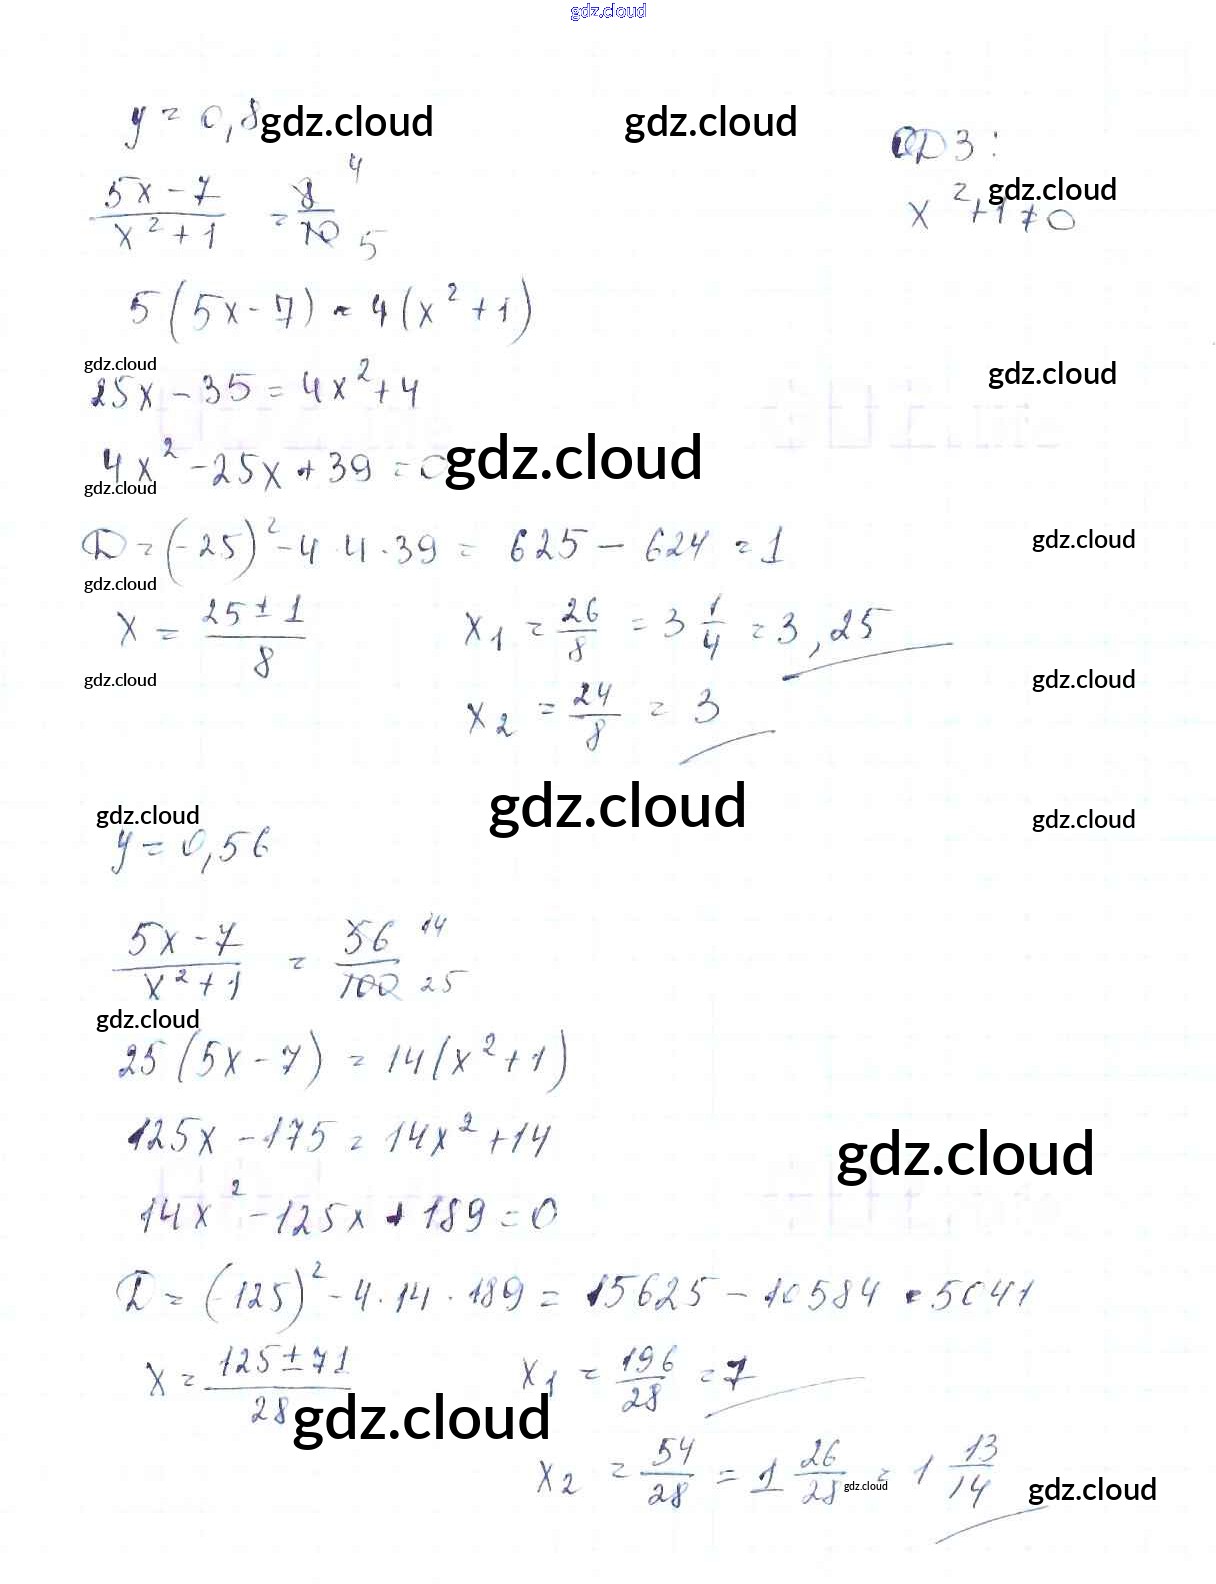 gdz.cloud
y = 0,8 gdz.cloud gdz.cloud
ОДЗ:
(5x - 7)/(x² + 1) = 8/10 4 5 gdz.cloud
x² + 1 ≠ 0
5(5x - 7) = 4(x² + 1)
gdz.cloud gdz.cloud
25x - 35 = 4x² + 4
4x² - 25x + 39 = 0 gdz.cloud
gdz.cloud
D = (-25)² - 4 · 4 · 39 = 625 - 624 = 1 gdz.cloud
gdz.cloud
x = (25 ± 1)/8 x₁ = 26/8 = 3 1/4 = 3,25
gdz.cloud gdz.cloud
x₂ = 24/8 = 3
gdz.cloud gdz.cloud gdz.cloud
y = 0,56
(5x - 7)/(x² + 1) = 56/100 14 25
gdz.cloud
25(5x - 7) = 14(x² + 1)
125x - 175 = 14x² + 14
gdz.cloud
14x² - 125x + 189 = 0
D = (-125)² - 4 · 14 · 189 = 15625 - 10584 = 5041
x = (125 ± 71)/28 x₁ = 196/28 = 7
gdz.cloud
x₂ = 54/28 = 1 26/28 = 1 13/14
gdz.cloud gdz.cloud